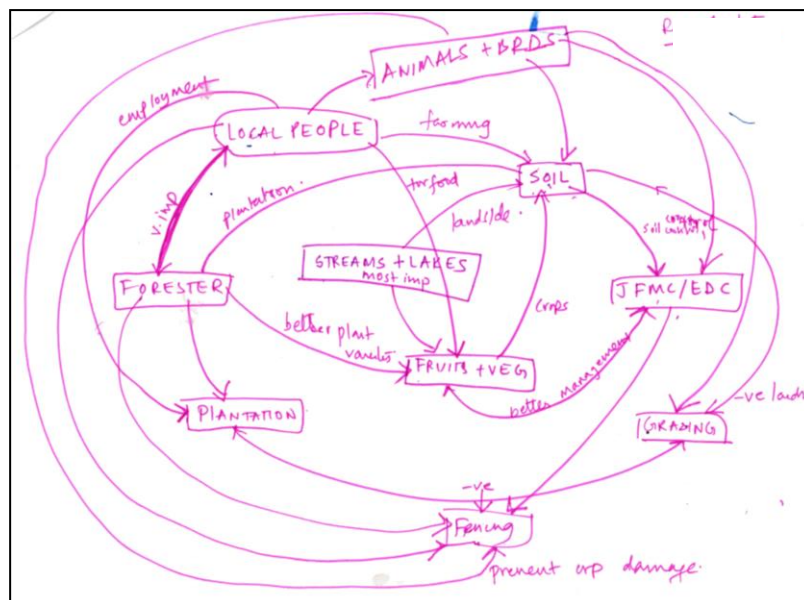 R
ANIMALS + BRDS
employment
LOCAL PEOPLE
farming
SOIL
for food
plantation.
v.imp
landslide.
soil
STREAMS + LAKES
most imp
FORESTER
JFMC/EDC
crops
better plant
varieties
FRUITS + VEG
better management
PLANTATION
-ve
GRAZING
-ve
Fencing
prevent crop damage.